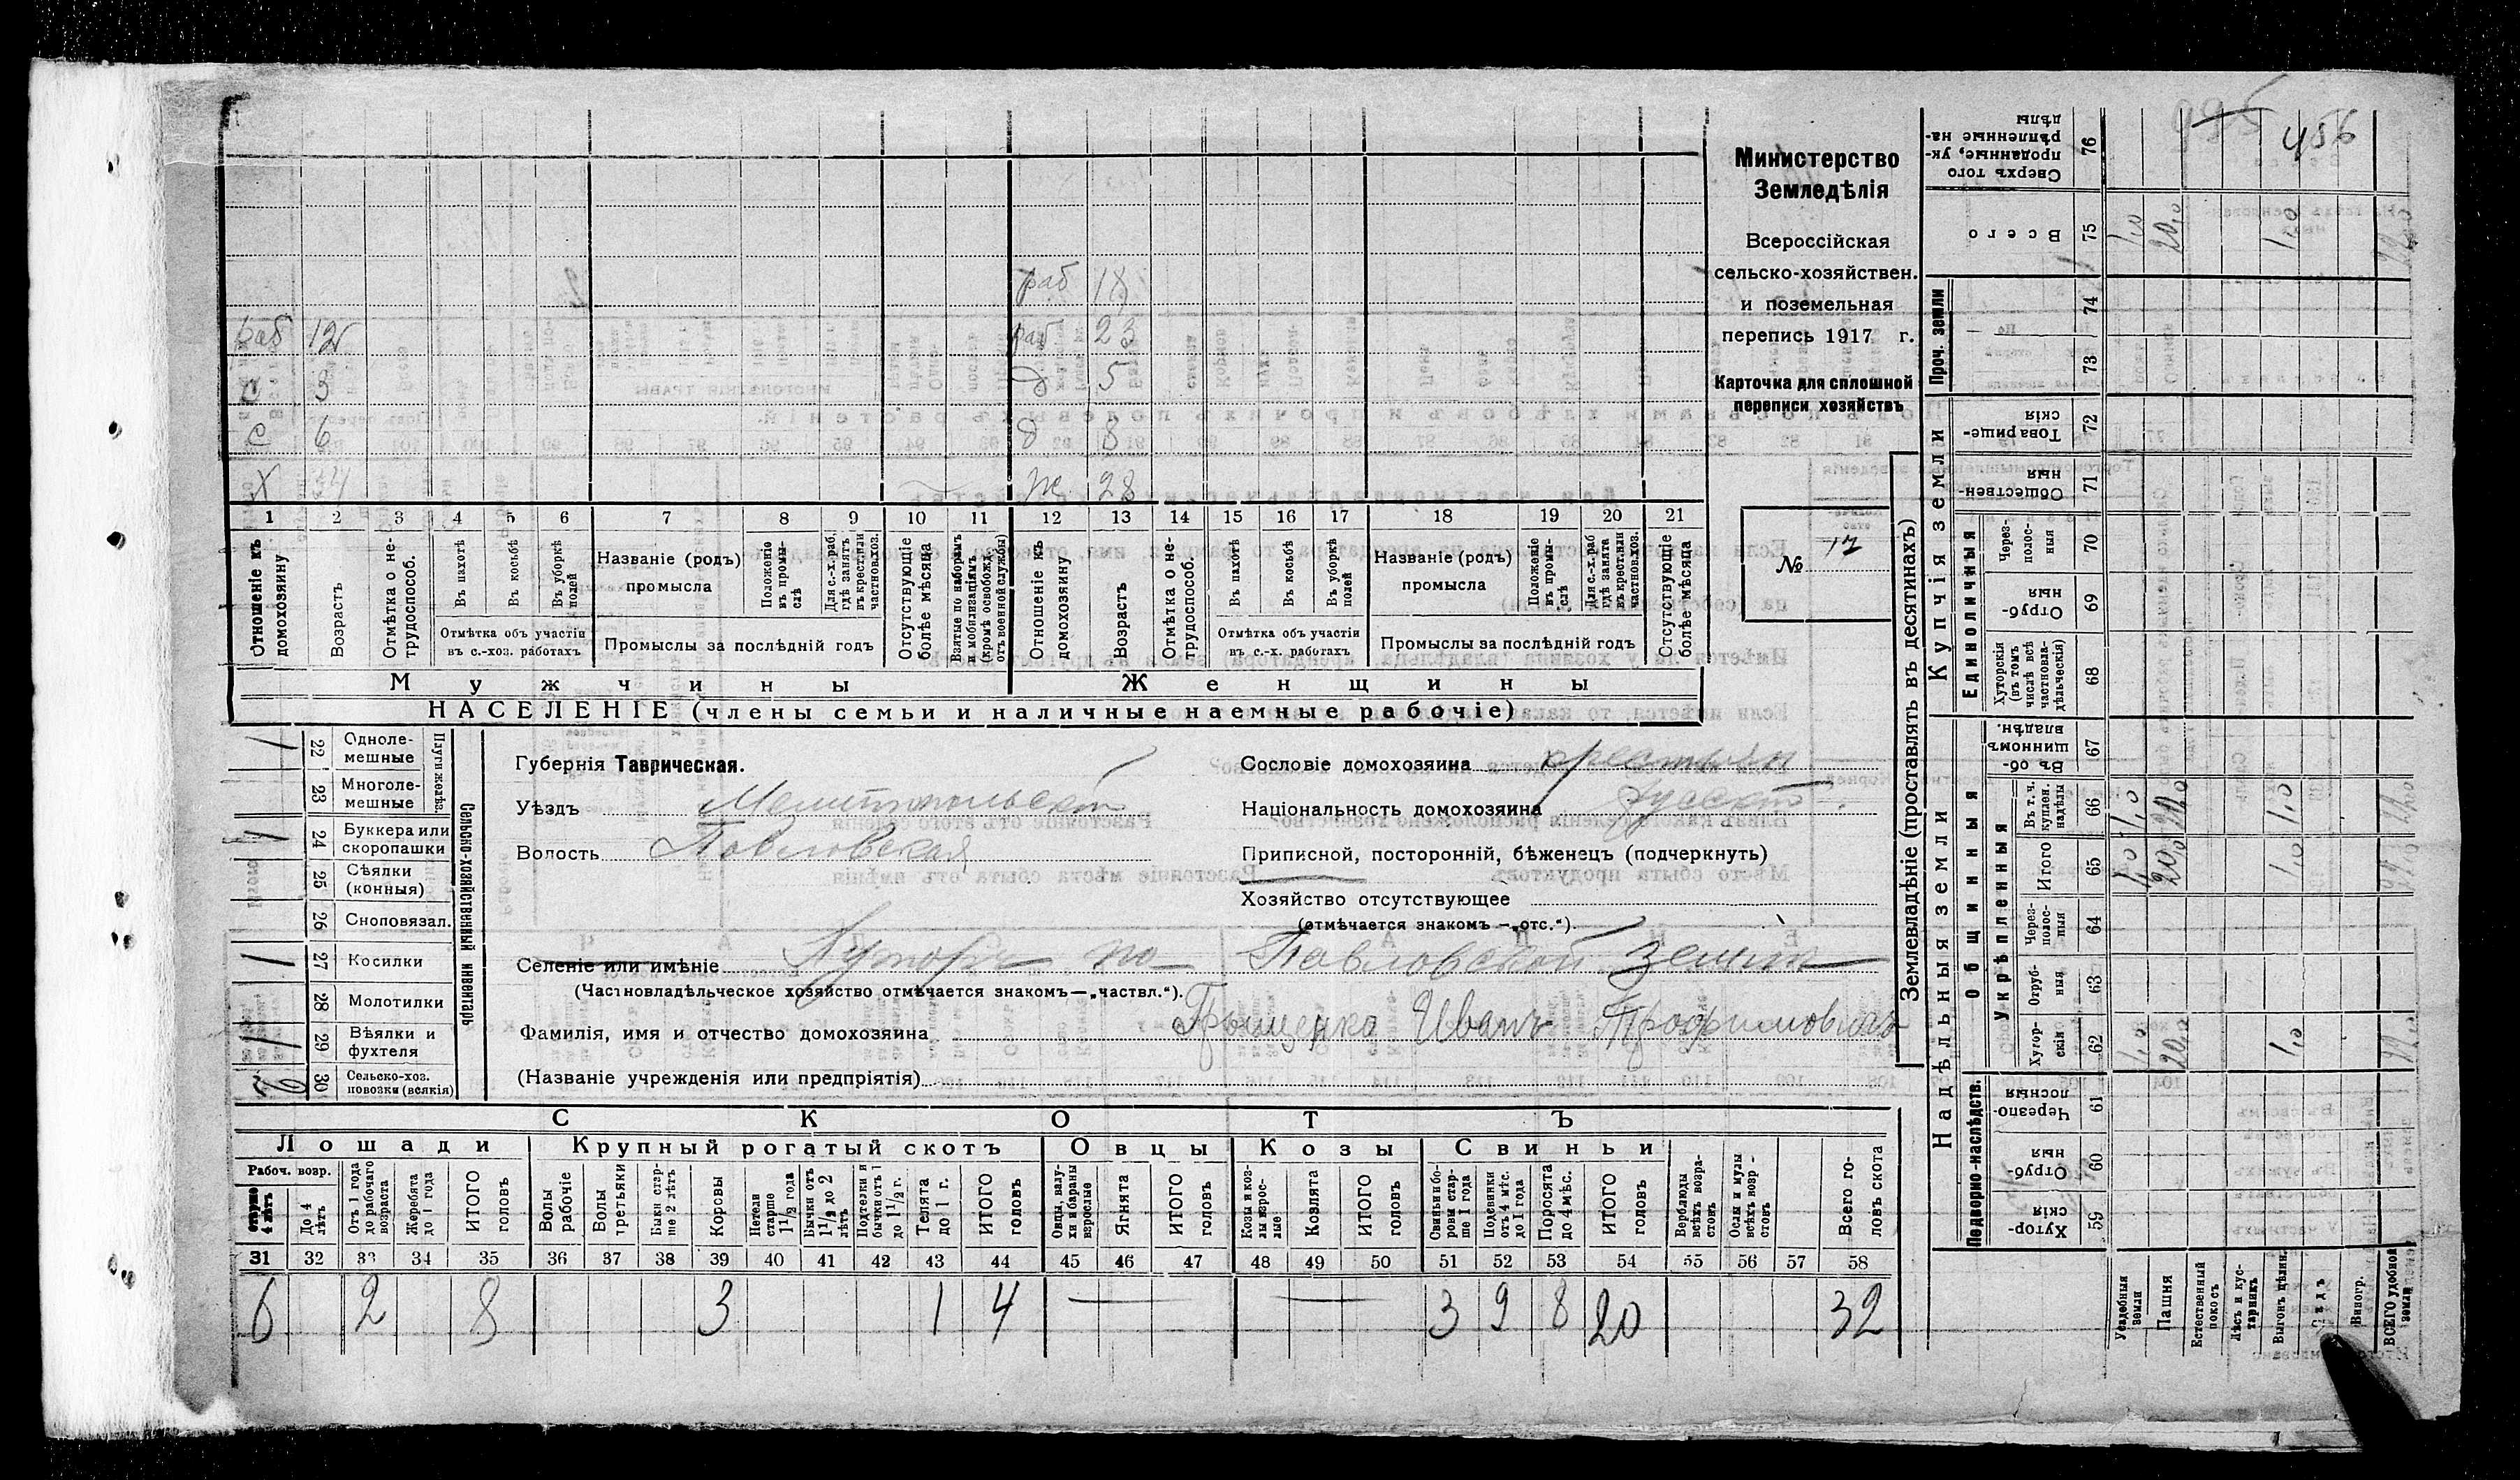 456
Министерство
Земледѣлія
Всероссійская
сельско-хозяйствен.
и поземельная
перепись 1917 г.
Карточка для сплошной
переписи хозяйствъ
№ 17
раб 18
раб 12 раб 23
с 3 д 5
с 6 д 8
Х ж 28
1 2 3 4 5 6 7 8 9 10 11 12 13 14 15 16 17 18 19 20 21
Отношеніе къ домохозяину
Возрастъ
Отмѣтка о не-трудоспособ.
Въ пахотѣ
Въ косьбѣ
Въ уборкѣ полей
Отмѣтка объ участіи въ с.-хоз. работахъ
Названіе (родъ) промысла
Положеніе въ промы-слѣ
Для с.-х. раб. гдѣ занятъ въ крест. или частновл. хоз.
Промыслы за послѣдній годъ
Отсутствующіе болѣе мѣсяца
Взятые по наборамъ и мобилизаціямъ (кромѣ освобожд. отъ военной службы)
Отношеніе къ домохозяину
Возрастъ
Отмѣтка о не-трудоспособ.
Въ пахотѣ
Въ косьбѣ
Въ уборкѣ полей
Отмѣтка объ участіи въ с.-х. работахъ
Названіе (родъ) промысла
Положеніе въ промы-слѣ
Для с.-х. раб гдѣ занята въ крест. или частновл. хоз.
Промыслы за послѣдній годъ
Отсутствующіе болѣе мѣсяца
Мужчины Женщины
НАСЕЛЕНІЕ (члены семьи и наличные наемные рабочіе)
Сельско-хозяйственный инвентарь
Плуги желѣз.
22 Одноле-мешные 1
23 Многоле-мешные
24 Буккера или скоропашки 1
25 Сѣялки (конныя)
26 Сноповязал.
27 Косилки 1
28 Молотилки
29 Вѣялки и фухтеля 1
30 Сельско-хоз. повозки (всякія)
Губернія Таврическая.
Уѣздъ Мелитопольскій
Волость Павловская
Сословіе домохозяина крестьян
Національность домохозяина русскій
Приписной, посторонній, бѣженецъ (подчеркнуть)
Хозяйство отсутствующее
(отмѣчается знакомъ — „отс.“).
Селеніе или имѣніе Хуторъ по Павловской земли
(Частновладѣльческое хозяйство отмѣчается знакомъ — „частвл.“).
Фамилія, имя и отчество домохозяина Грыценко Иванъ Трофимовичъ
(Названіе учрежденія или предпріятія)
СКОТЪ
Лошади Крупный рогатый скотъ Овцы Козы Свиньи
Рабоч. возр.
старше 4 лѣтъ
До 4 лѣтъ
Отъ 1 года до рабочаго возраста
Жеребята до 1 года
ИТОГО головъ
Волы рабочіе
Волы третьяки
Быки стар-ше 2 лѣтъ
Коровы
Нетели старше 1 1/2 года
Бычки отъ 1 1/2 до 2 лѣтъ
Подтелки и бычки отъ 1 до 1 1/2 г.
Телята до 1 г.
ИТОГО головъ
Овцы, валу-хи и бараны взрослые
Ягнята
ИТОГО головъ
Козы и коз-лы взрос-лые
Козлята
ИТОГО головъ
Свиньи и бо-ровы стар-ше 1 года
Подсвинки отъ 4 мѣс. до 1 года
Поросята до 4 мѣс.
ИТОГО головъ
Верблюды всѣхъ возра-стовъ
Ослы и мулы всѣхъ возра-стовъ
Всего го-ловъ скота
31 32 33 34 35 36 37 38 39 40 41 42 43 44 45 46 47 48 49 50 51 52 53 54 55 56 57 58
6 2 8 3 1 4 — — 3 9 8 20 32
Землевладѣніе (проставлять въ десятинахъ)
Надѣльныя земли
Купчія земли
Проч. земли
Подворно-наслѣдств.
Общинныя
Укрѣпленныя
Единоличныя
59 Хутор-скія
60 Отруб-ныя
61 Черезпо-лосныя
62 Хутор-скія 1,0 20,0 1,0 22,0
63 Отруб-ныя
64 Через-полос-ныя
65 Итого 1,0 20,0 1,0 22,0
66 Въ т. ч. куплен. надѣлы 1,0 20,0 1,0 22,0
67 Въ об-щинномъ владѣн.
68 Хуторскія (въ томъ числѣ всѣ частновла-дѣльческія)
69 Отруб-ныя
70 Через-полос-ныя
71 Обществен-ныя
72 Товарище-скія
73
74
75 Всего 1,0 20,0 1,0 22,0
76 Сверхъ того проданные, ук-рѣпленные на-дѣлы
Усадебныя земли
Пашня
Естественный покосъ
Лѣсъ и кус-тарникъ
Выгонъ цѣлин.
Виногр.
ВСЕГО удобной земли